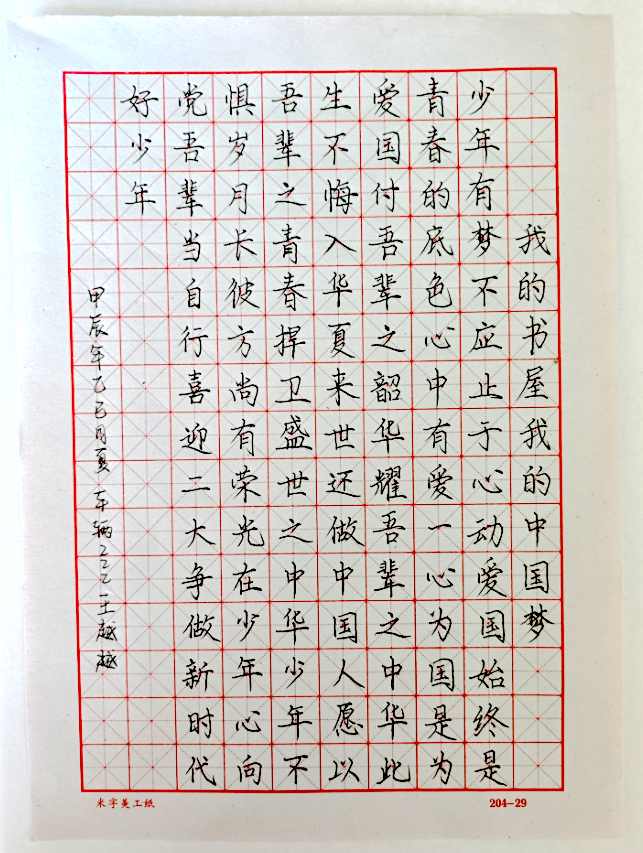 我的书屋我的中国梦
少年有梦不应止于心动爱国始终是
青春的底色心中有爱一心为国是为
爱国付吾辈之韶华耀吾辈之中华此
生不悔入华夏来世还做中国人愿以
吾辈之青春捍卫盛世之中华少年不
惧岁月长彼方尚有荣光在少年心向
党吾辈当自行喜迎二大争做新时代
好少年
甲辰年乙巳月夏 车辆2331王越越
米字美工纸
204-29